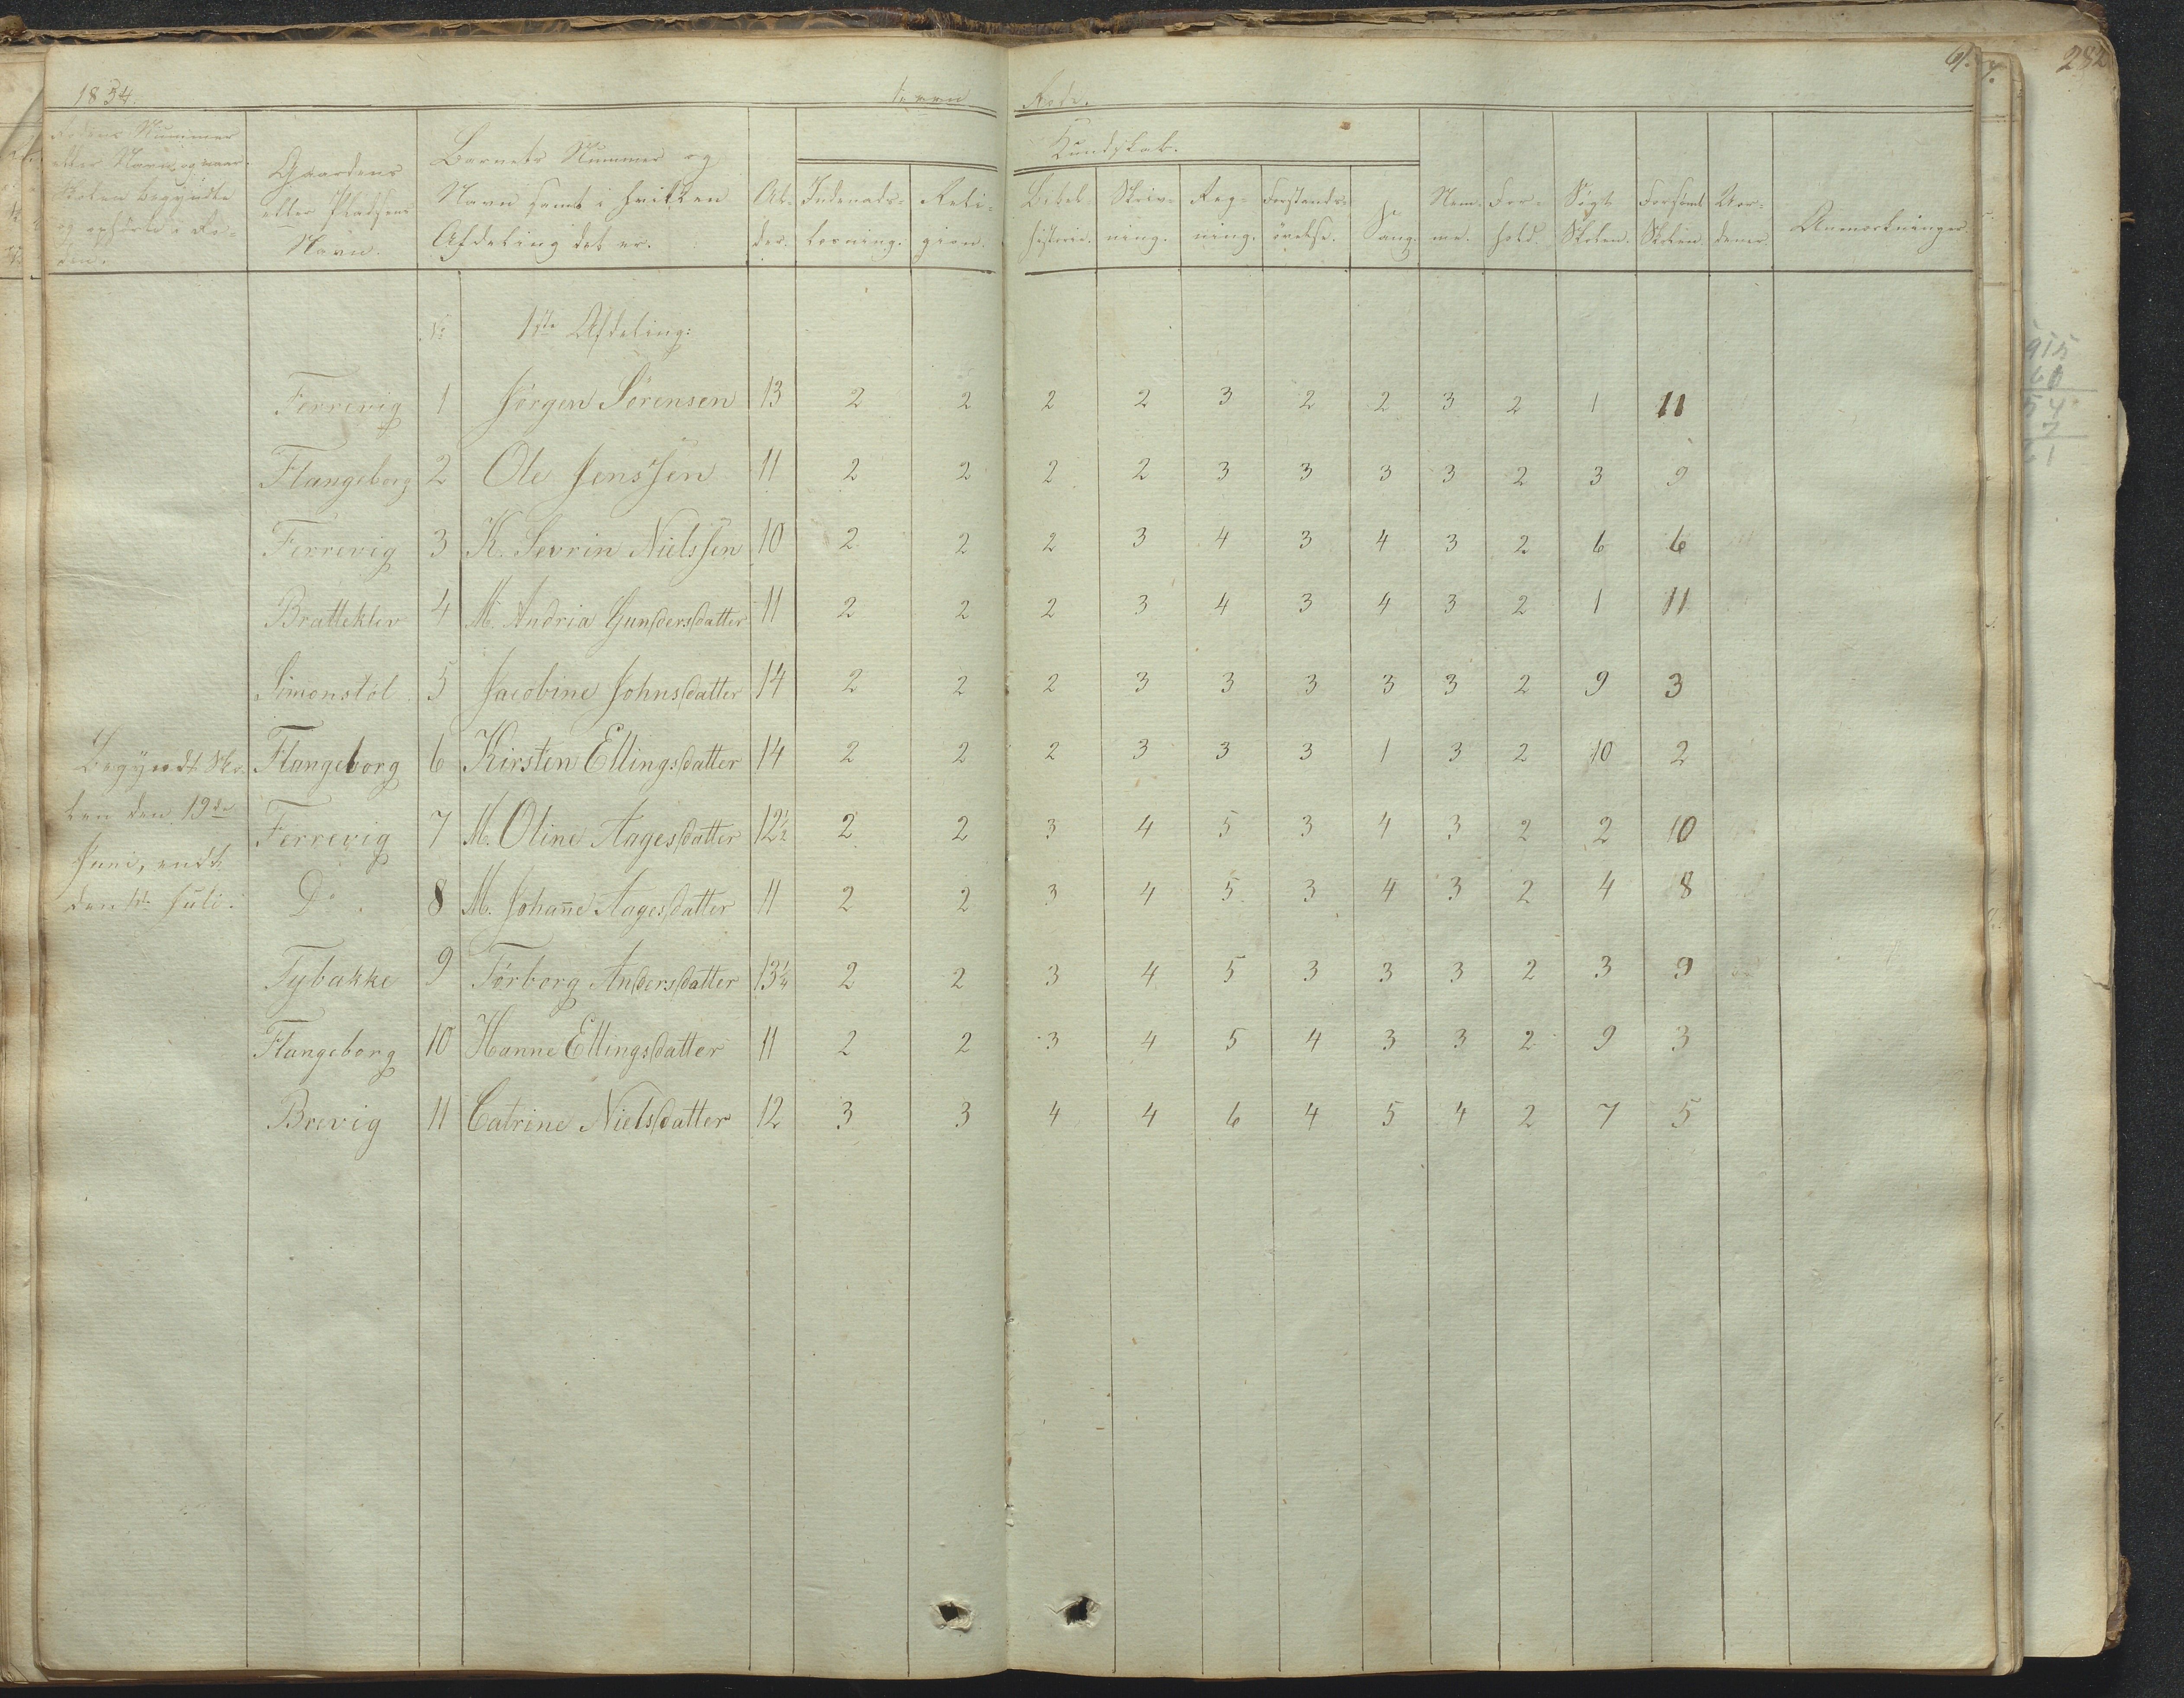 1834.
Rode.
61.
282
Rodens Nummer
eller Navn, og naar
Skolen begyndte
og ophörte i Ro-
den.
Gaardens
eller Pladsens
Navn.
Barnets Nummer og
Navn samt i hvilken
Afdeling det er.
Al-
der.
Kundskab.
Indenads-
læsning.
Reli-
gion.
Bibel-
historie.
Skriv-
ning.
Reg-
ning.
Forstands-
övelse.
Sang.
Nem-
me.
For-
hold.
Søgt
Skolen.
Forsømt
Skolen.
Anmærkninger.
No 1ste Afdeling:
Ferrevig 1 Jørgen Sørensen 13 2 2 2 2 3 2 2 3 2 1 11
Flangeborg 2 Ole Jenssen 11 2 2 2 2 3 3 3 3 2 3 9
Ferrevig 3 K. Sevrin Nielssen 10 2 2 2 3 4 3 4 3 2 6 6
Brattekler 4 M. Andria Gundersdatter 11 2 2 2 3 4 3 4 3 2 1 11
Simonstøl 5 Jacobine Johnsdatter 14 2 2 2 3 3 3 3 3 2 9 3
Flangeborg 6 Kirsten Ellingsdatter 14 2 2 2 3 3 3 1 3 2 10 2
Ferrevig 7 M. Oline Aagesdatter 12½ 2 2 3 4 5 3 4 3 2 2 10
Do. 8 M. Johan̄e Aagesdatter 11 2 2 3 4 5 3 4 3 2 4 8
Tybakke 9 Torborg Andersdatter 13¼ 2 2 3 4 5 3 3 3 2 3 9
Flangeborg 10 Hanne Ellingsdatter 11 2 2 3 4 5 4 3 3 2 9 3
Brevig 11 Catrine Nielsdatter 12 3 3 4 4 6 4 5 4 2 7 5
Begyndt Sko-
len den 19de
Juni, endt
den Juli.
915
60
54
7
61